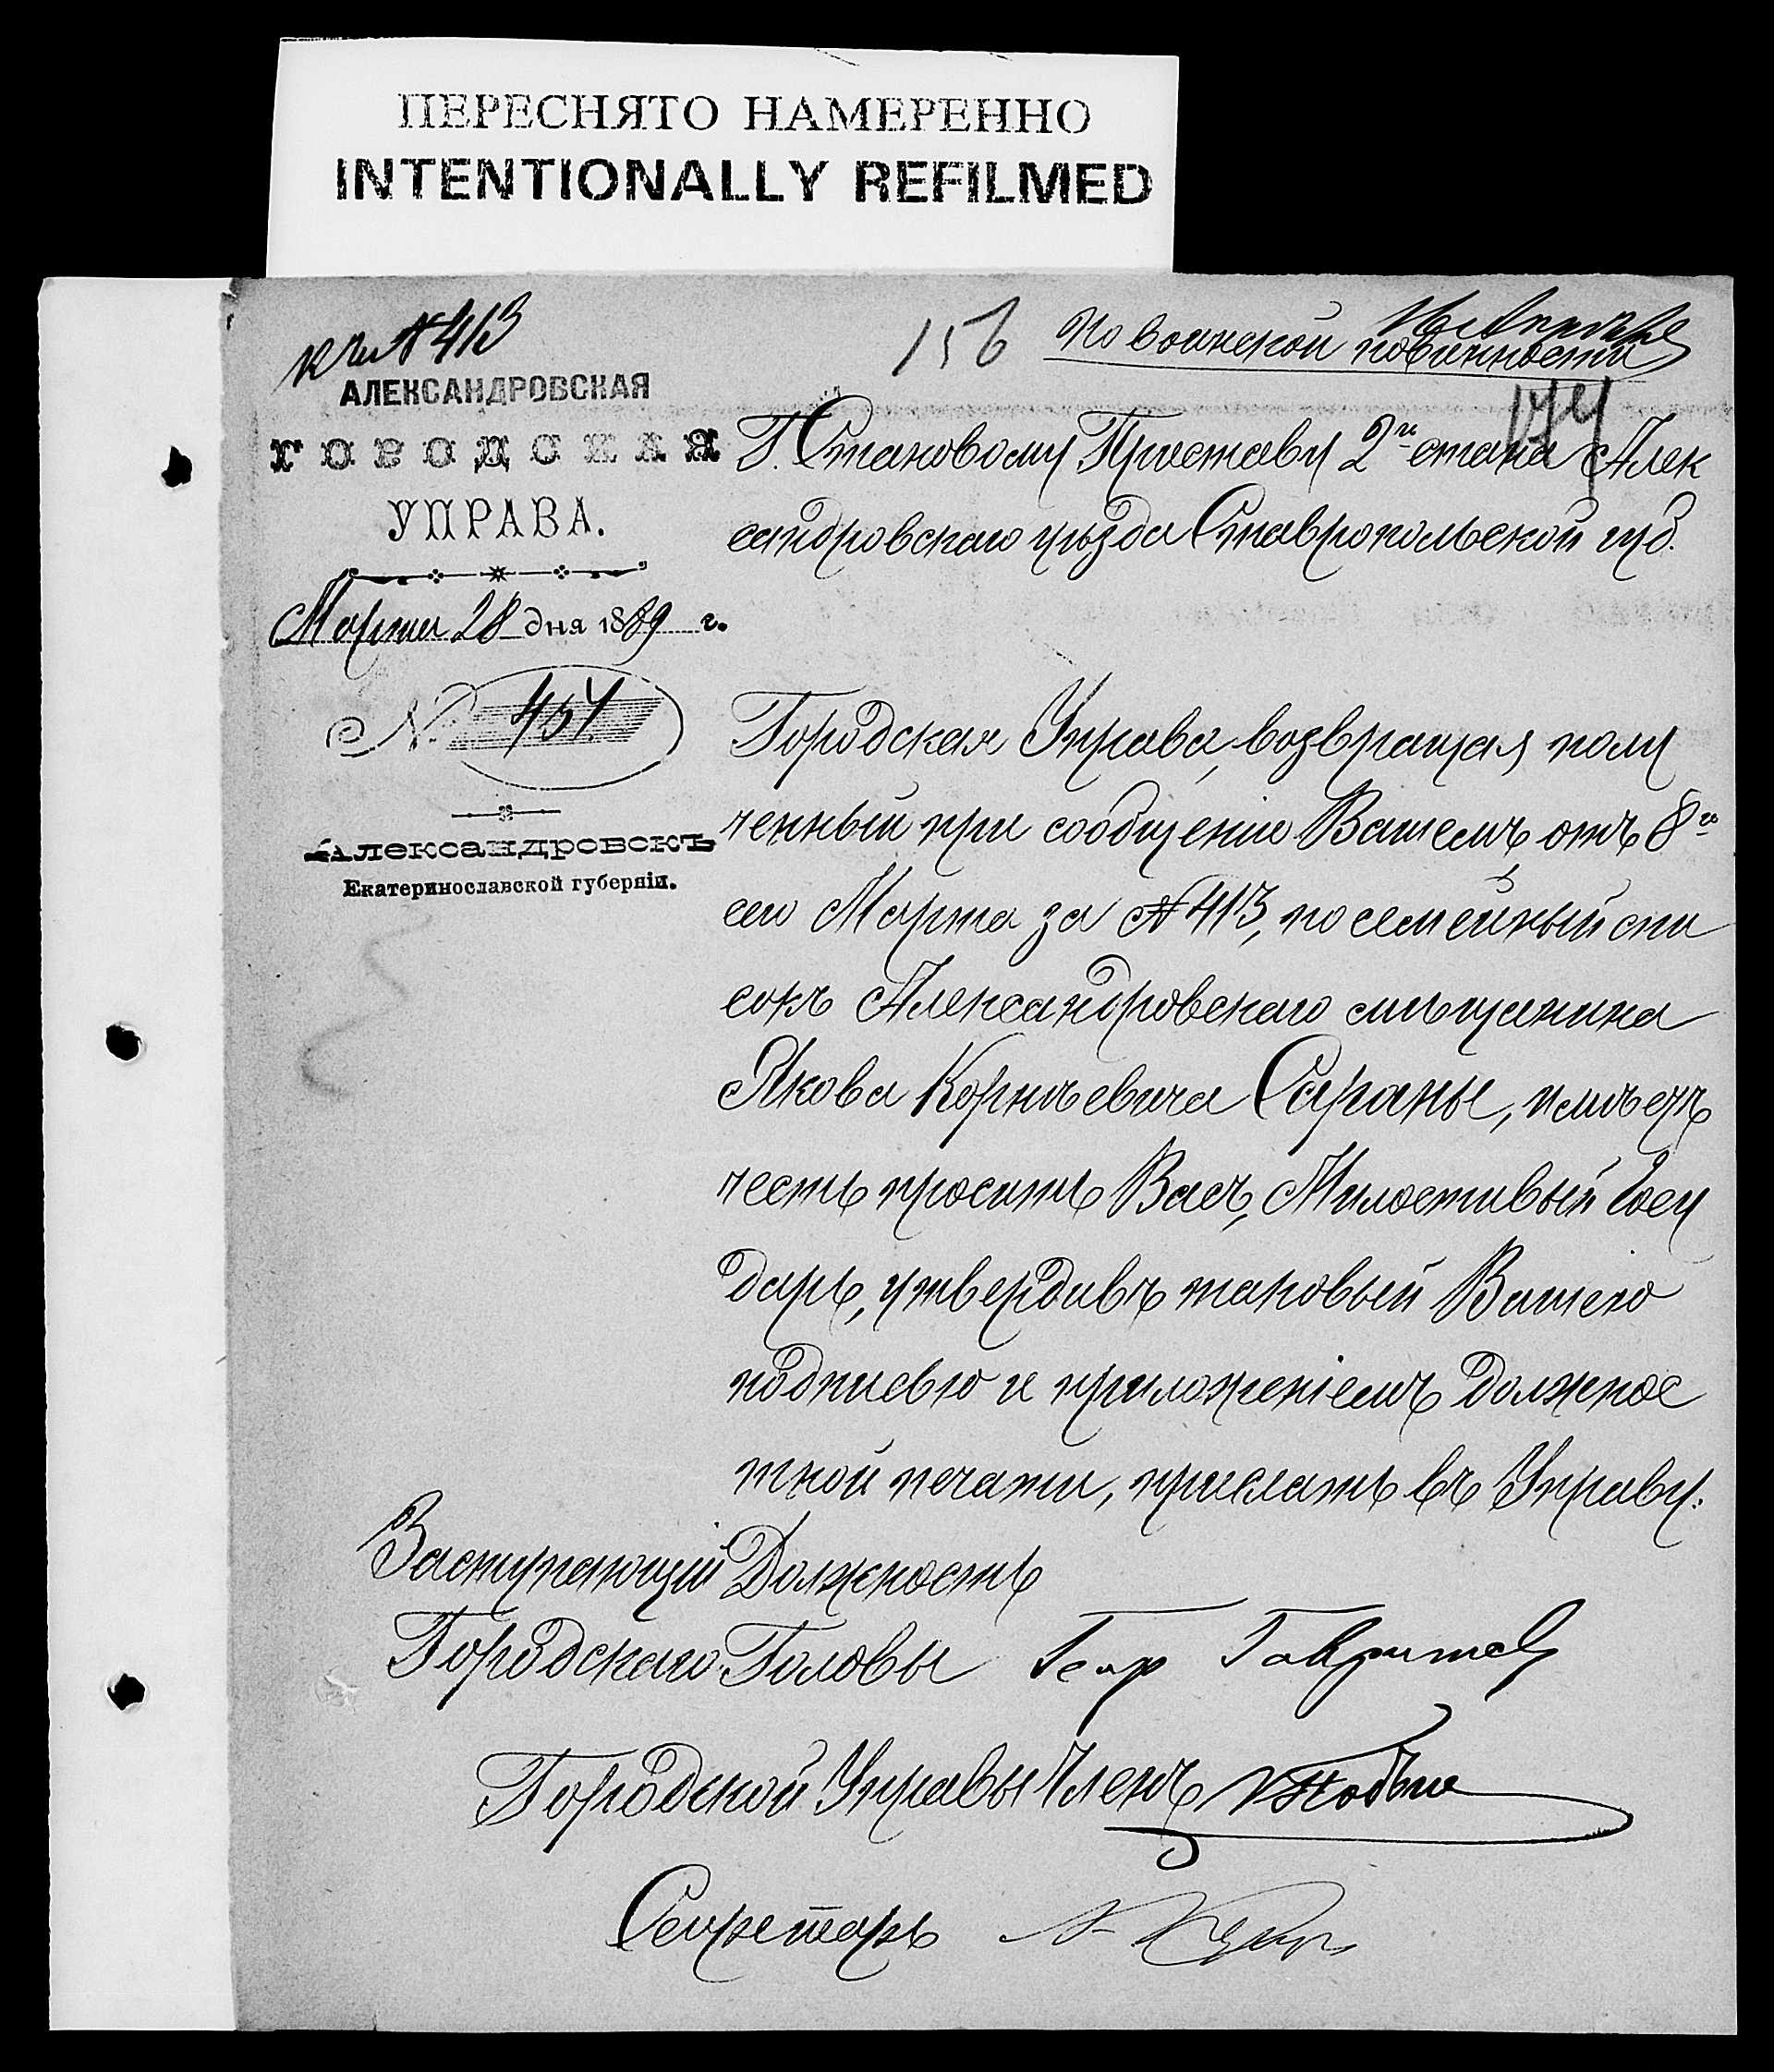 ПЕРЕСНЯТО НАМЕРЕННО
INTENTIONALLY REFILMED
к № 413
156
По воинской повинности
174
АЛЕКСАНДРОВСКАЯ
ГОРОДСКАЯ
УПРАВА.
Марта 28 дня 1889 г.
№ 454
Александровскъ
Екатеринославской губерніи.
Г. Становому Приставу 2го стана Алек
сандровскаго уѣзда Ставропольской губ.
Городская Управа, возвращая полу
ченный при сообщеніи Вашемъ, отъ 8го
сего Марта за № 413, посемейный спи
сокъ Александровскаго мѣщанина
Якова Корнѣевича Сараны, имѣетъ
честь просить Васъ, Милостивый Госу
дарь, утвердивъ таковый Вашею
подписью и приложеніемъ должнос
тной печати, прислать въ Управу.
Заступающій Должность
Городскаго Головы
Городской Управы Членъ
Секретарь